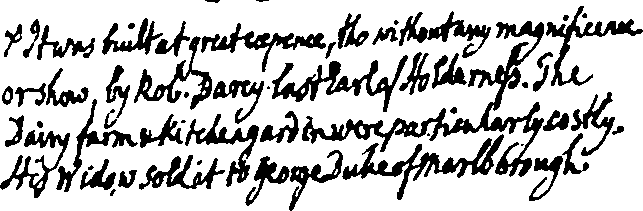 + It was built at great expence, tho without any magnificence
or show, by Rob.t Darcy last Earl of Holderness. The
Dairy farm & Kitchen garden were particularly costly.
His Widow sold it to George Duke of Marlborough.